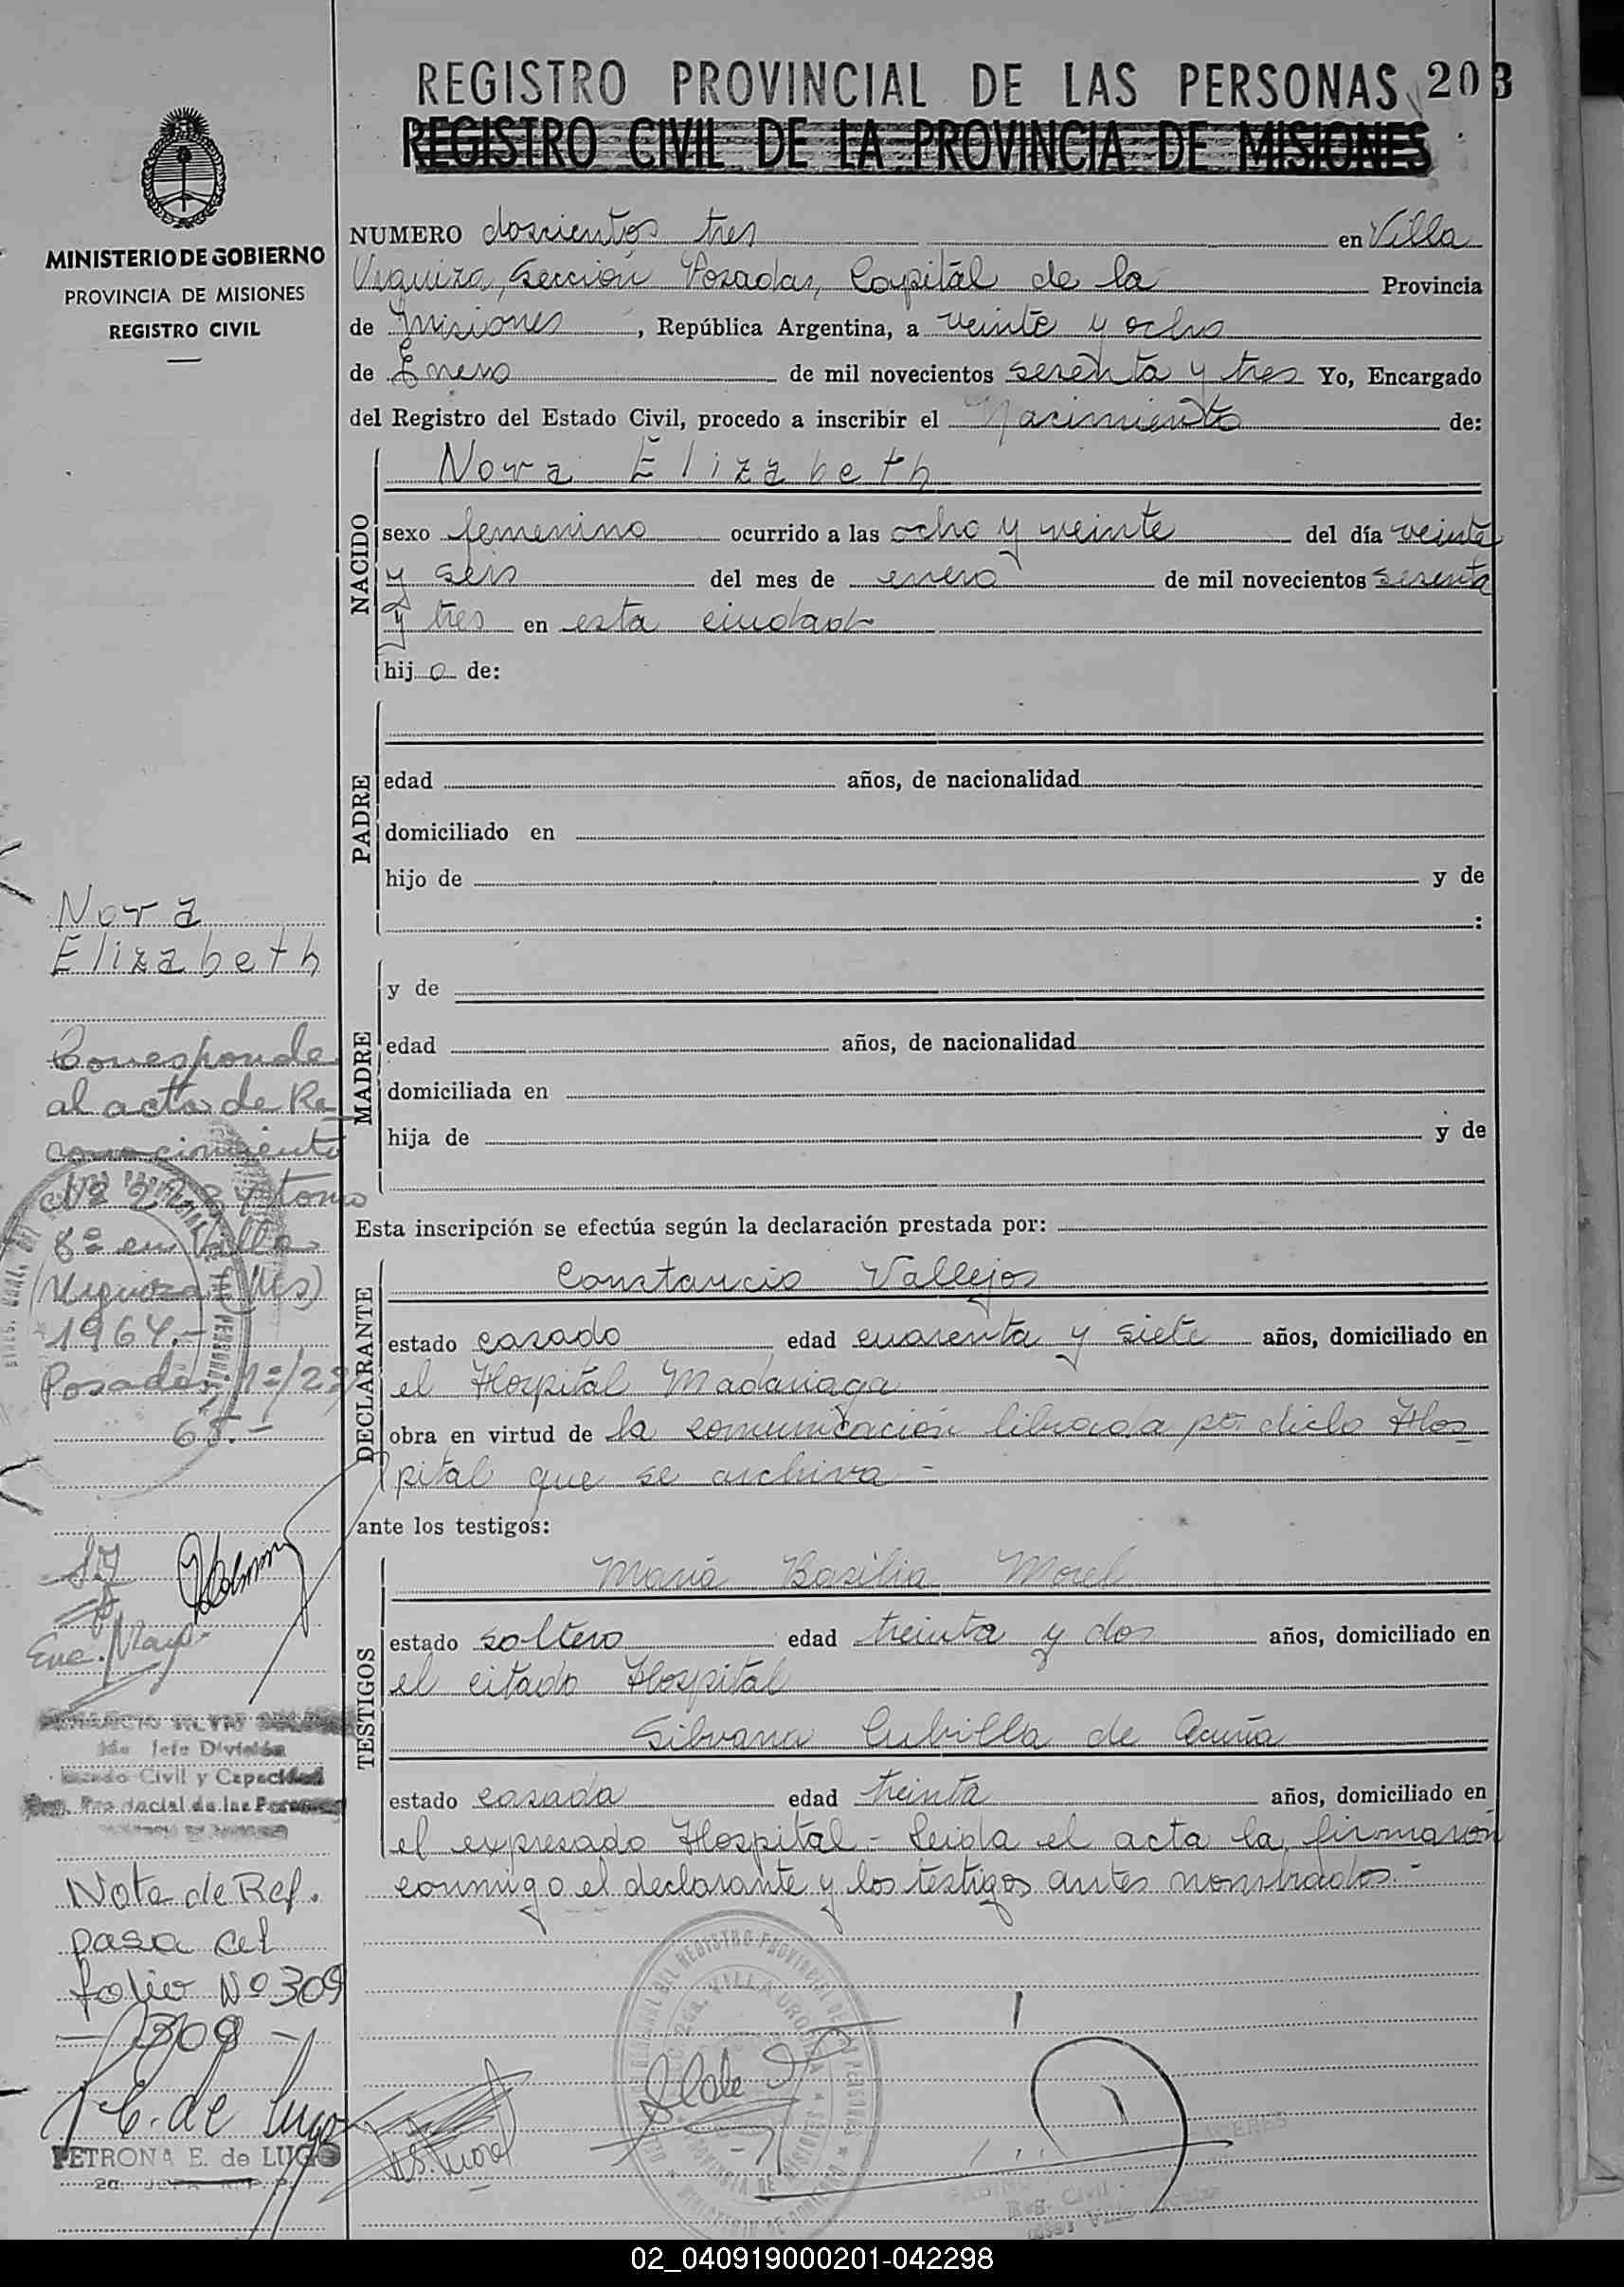 REGISTRO PROVINCIAL DE LAS PERSONAS 203
REGISTRO CIVIL DE LA PROVINCIA DE MISIONES
MINISTERIO DE GOBIERNO
PROVINCIA DE MISIONES
REGISTRO CIVIL
NUMERO doscientos tres en Villa
Urquiza, Sección Posadas, Capital de la Provincia
de Misiones, República Argentina, a veinte y ocho
de Enero de mil novecientos sesenta y tres Yo, Encargado
del Registro del Estado Civil, procedo a inscribir el Nacimiento de:
NACIDO
Nora Elizabeth
sexo femenino ocurrido a las ocho y veinte del día veinte
y seis del mes de enero de mil novecientos sesenta
y tres en esta ciudad
hij a de:
PADRE
edad años, de nacionalidad
domiciliado en
hijo de y de
:
MADRE
y de
edad años, de nacionalidad
domiciliada en
hija de y de
Esta inscripción se efectúa según la declaración prestada por:
DECLARANTE
Constancio Vallejos
estado casado edad cuarenta y siete años, domiciliado en
el Hospital Madariaga
obra en virtud de la comunicación librada por dicho Hos
pital que se archiva -
ante los testigos:
TESTIGOS
María Basilia Morel
estado soltera edad treinta y dos años, domiciliado en
el citado Hospital
Silvana Cubilla de Acuña
estado casada edad treinta años, domiciliado en
el expresado Hospital - Leida el acta la firmaron
conmigo el declarante y los testigos antes nombrados. -
Nora
Elizabeth
Corresponde
al acta de Re
conocimiento
tomo
8º en Villa
Urquiza (Mes)
1964.-
Posadas,
65.-
Enc. Mayo
2do Jefe División
Estado Civil y Capacidad
Reg. Provincial de las Personas
Nota de Ref.
pasa al
folio Nº 309
- 309 -
P. E. de Lugo
PETRONA E. de LUGO
02_040919000201-042298